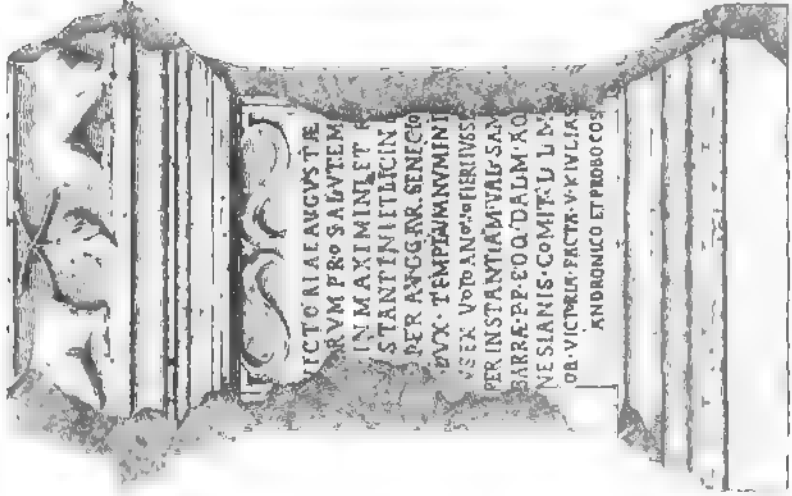 ICTORIAE AVGVSTÆ
RVM PRO SALVTEM
N MAXIMINI ET
STANTINI ET LICIN
PER AVGG AVR SENECIO
DVX · TEMPLVM NVMINI
VS EX VOTO A NOVO FIERI IVSS
PER INSTANTIAM VAL SAM
BARRÆ · PP · EQQ · DALM · AQ
NESIANIS · COMIT · L L M
OB · VICTORIA · FACTA · V · K IVLIAS
ANDRONICO ET PROBO COS